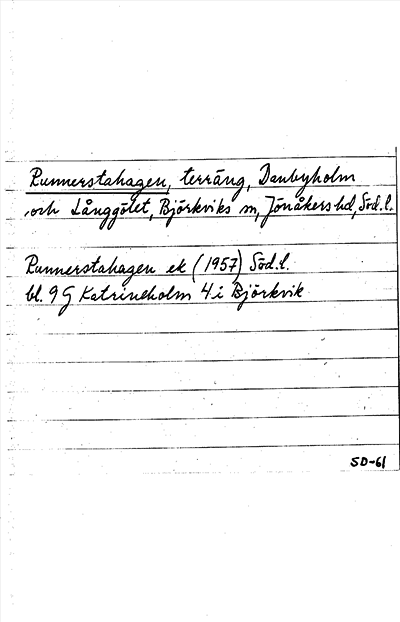 Runnerstahagen, terräng, Danbyholm
och Långgölet, Björkviks sn, Jönåkers hd, Söd.l.
Runnerstahagen ek (1957) Söd.l.
bl. 9G Katrineholm 4i Björkvik
SD-61